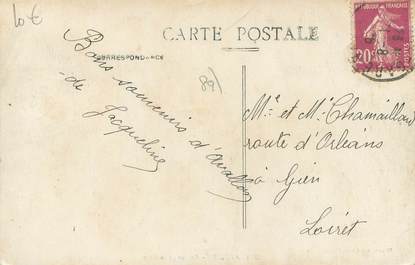 10 €
CARTE POSTALE
CORRESPONDANCE
REPUBLIQUE FRANÇAISE
20c
POSTES
89
Bons souvenirs d'Avallon
de Jacqueline
Mr et Me Chamaillard
route d'Orléans
à Gien
Loiret